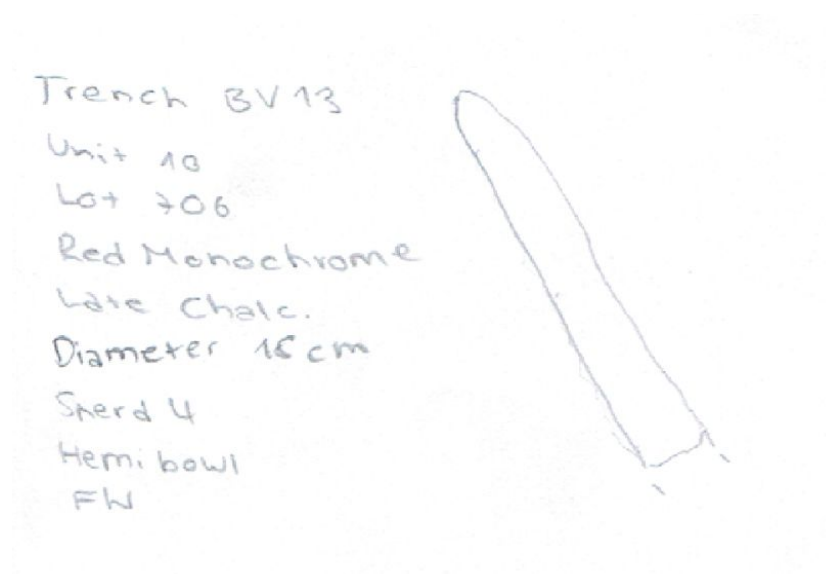 Trench BV13
Unit 10
Lot 706
Red Monochrome
Late Chalc.
Diameter 16 cm
Sherd 4
Hemi bowl
FW